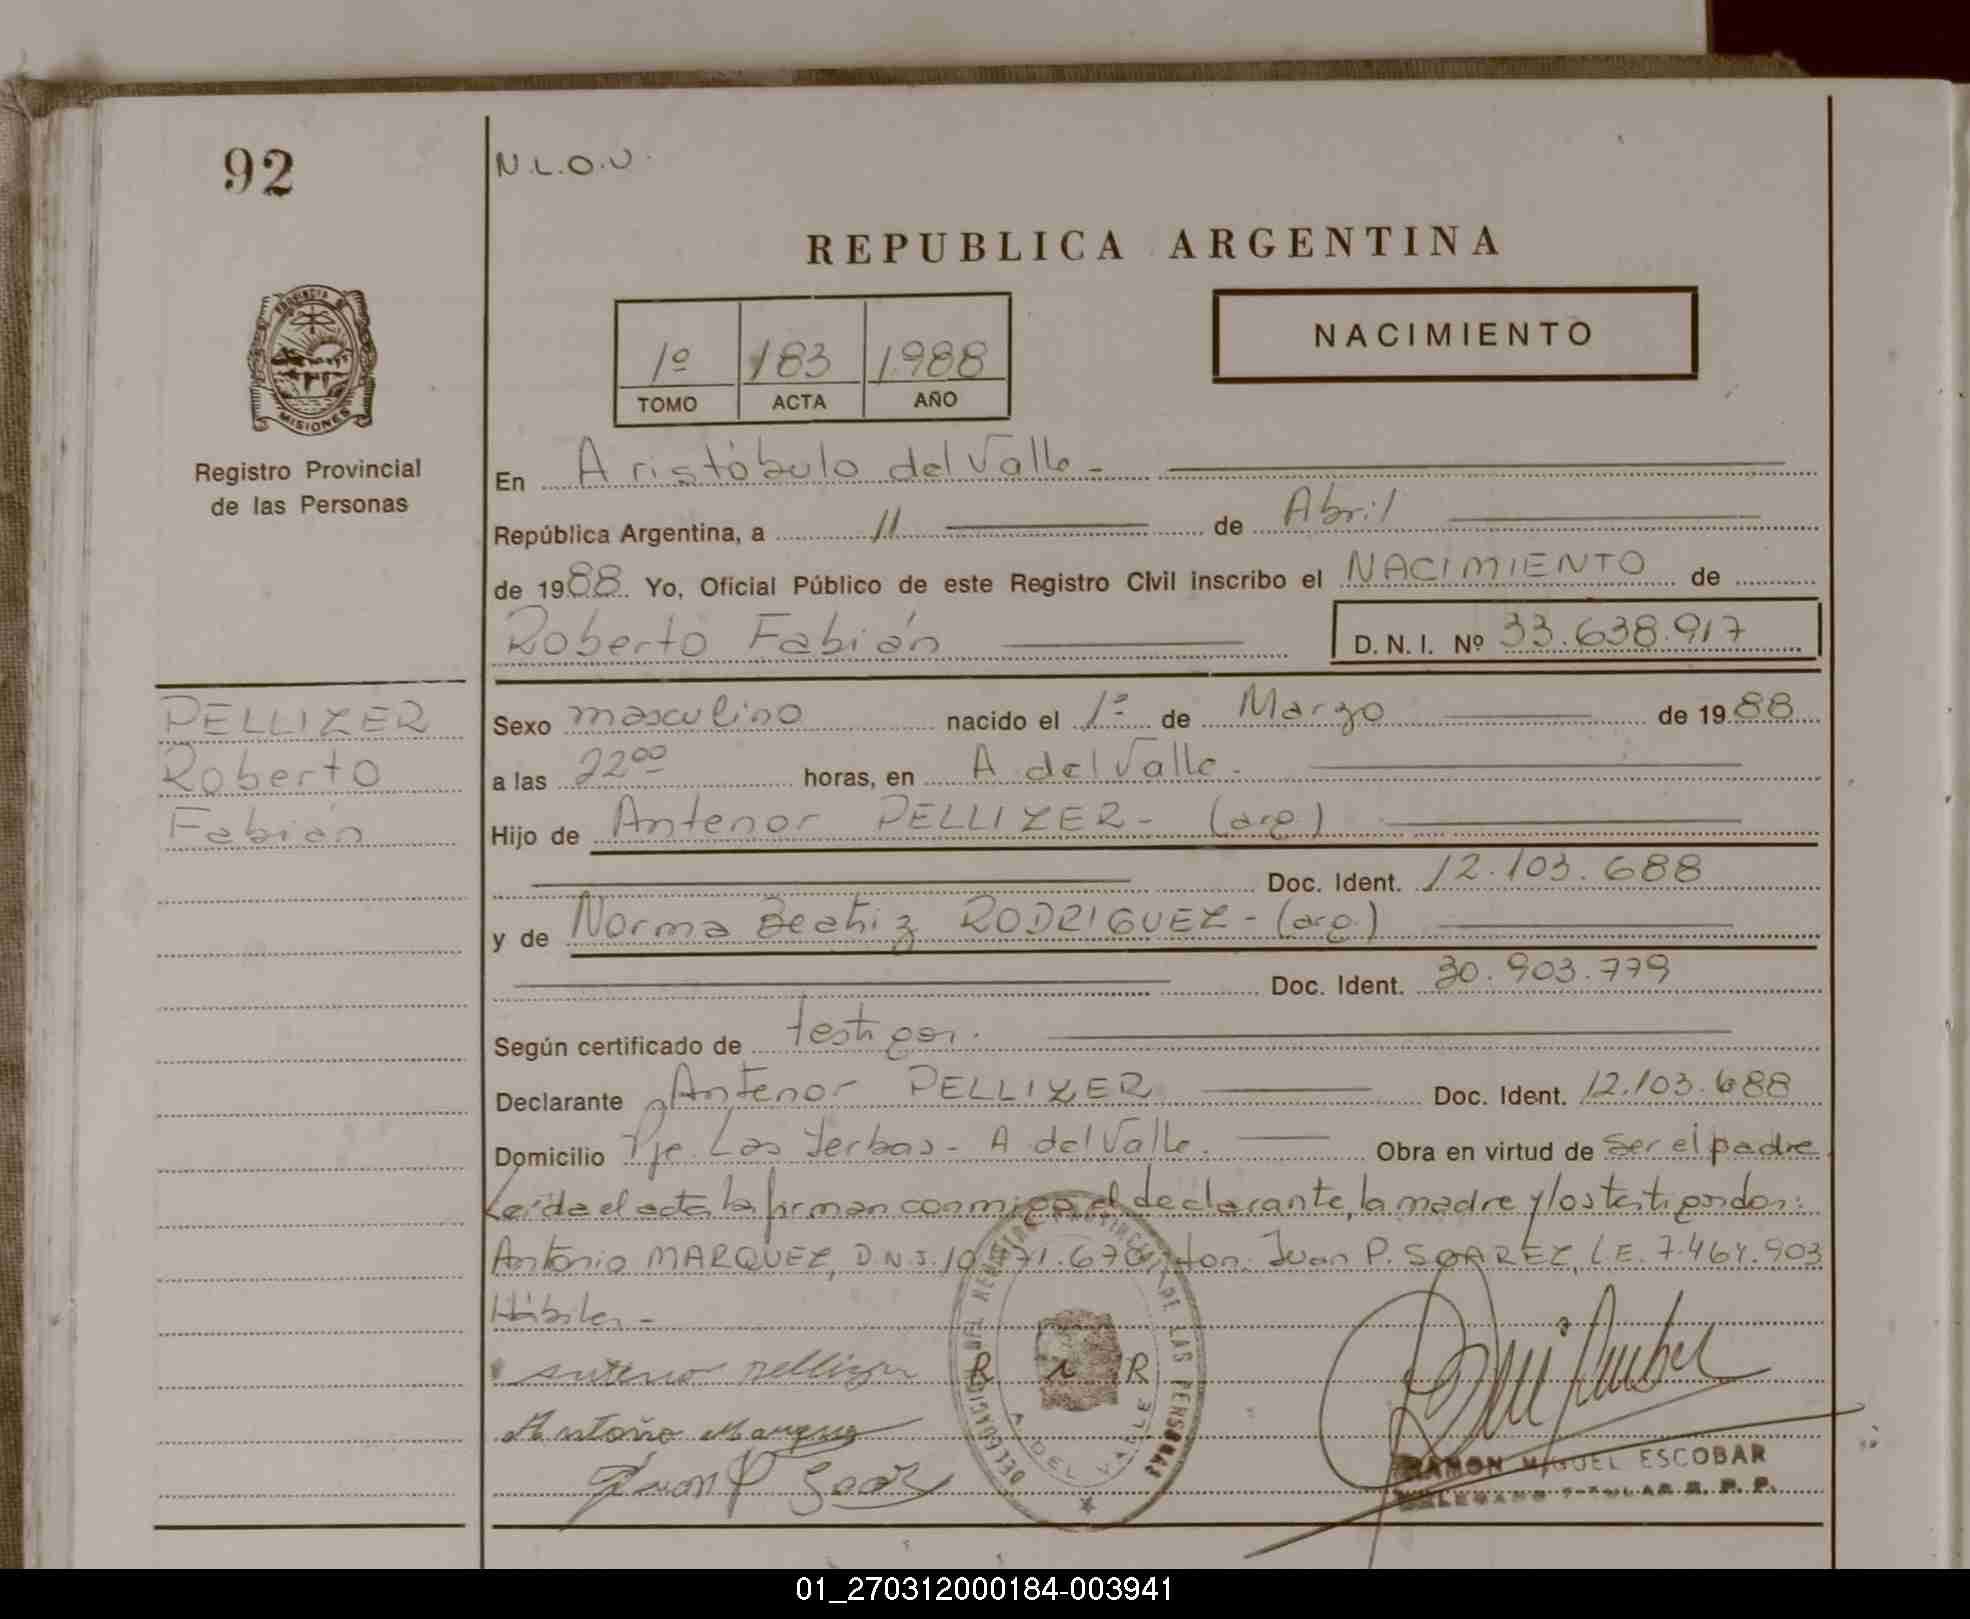 92
N.L.O.U.
REPUBLICA ARGENTINA
PROVINCIA D
MISIONES
1º 183 1.988
TOMO ACTA AÑO
NACIMIENTO
Registro Provincial
de las Personas
En Aristóbulo del Valle -
República Argentina, a 11 de Abril
de 1988. Yo, Oficial Público de este Registro Civil inscribo el NACIMIENTO de
Roberto Fabián D. N. I. Nº 33.638.917
PELLIZER
Roberto
Fabián
Sexo masculino nacido el 1º de Marzo de 1988
a las 22⁰⁰ horas, en A del Valle.
Hijo de Antenor PELLIZER - (arg)
Doc. Ident. 12.103.688
y de Norma Beatriz RODRIGUEZ - (arg.)
Doc. Ident. 30.903.779
Según certificado de testigos.
Declarante Antenor PELLIZER Doc. Ident. 12.103.688
Domicilio Pje. Las Yerbas - A del Valle. Obra en virtud de ser el padre.
Leída el acta la firman conmigo el declarante, la madre y los testigos don:
Antonio MARQUEZ, D.N.I. 10. 71.670, don. Juan P. SOAREZ, L.E. 7.464.903
Hábiles -
DELEGACION DEL REGISTRO PROVINCIAL DE LAS PERSONAS
A. DEL VALLE
R R
Antenor Pellizer
Antoño Marquez
Juan P Soarez
RAMON MIGUEL ESCOBAR
DELEGADO TITULAR R. P. P.
01_270312000184-003941